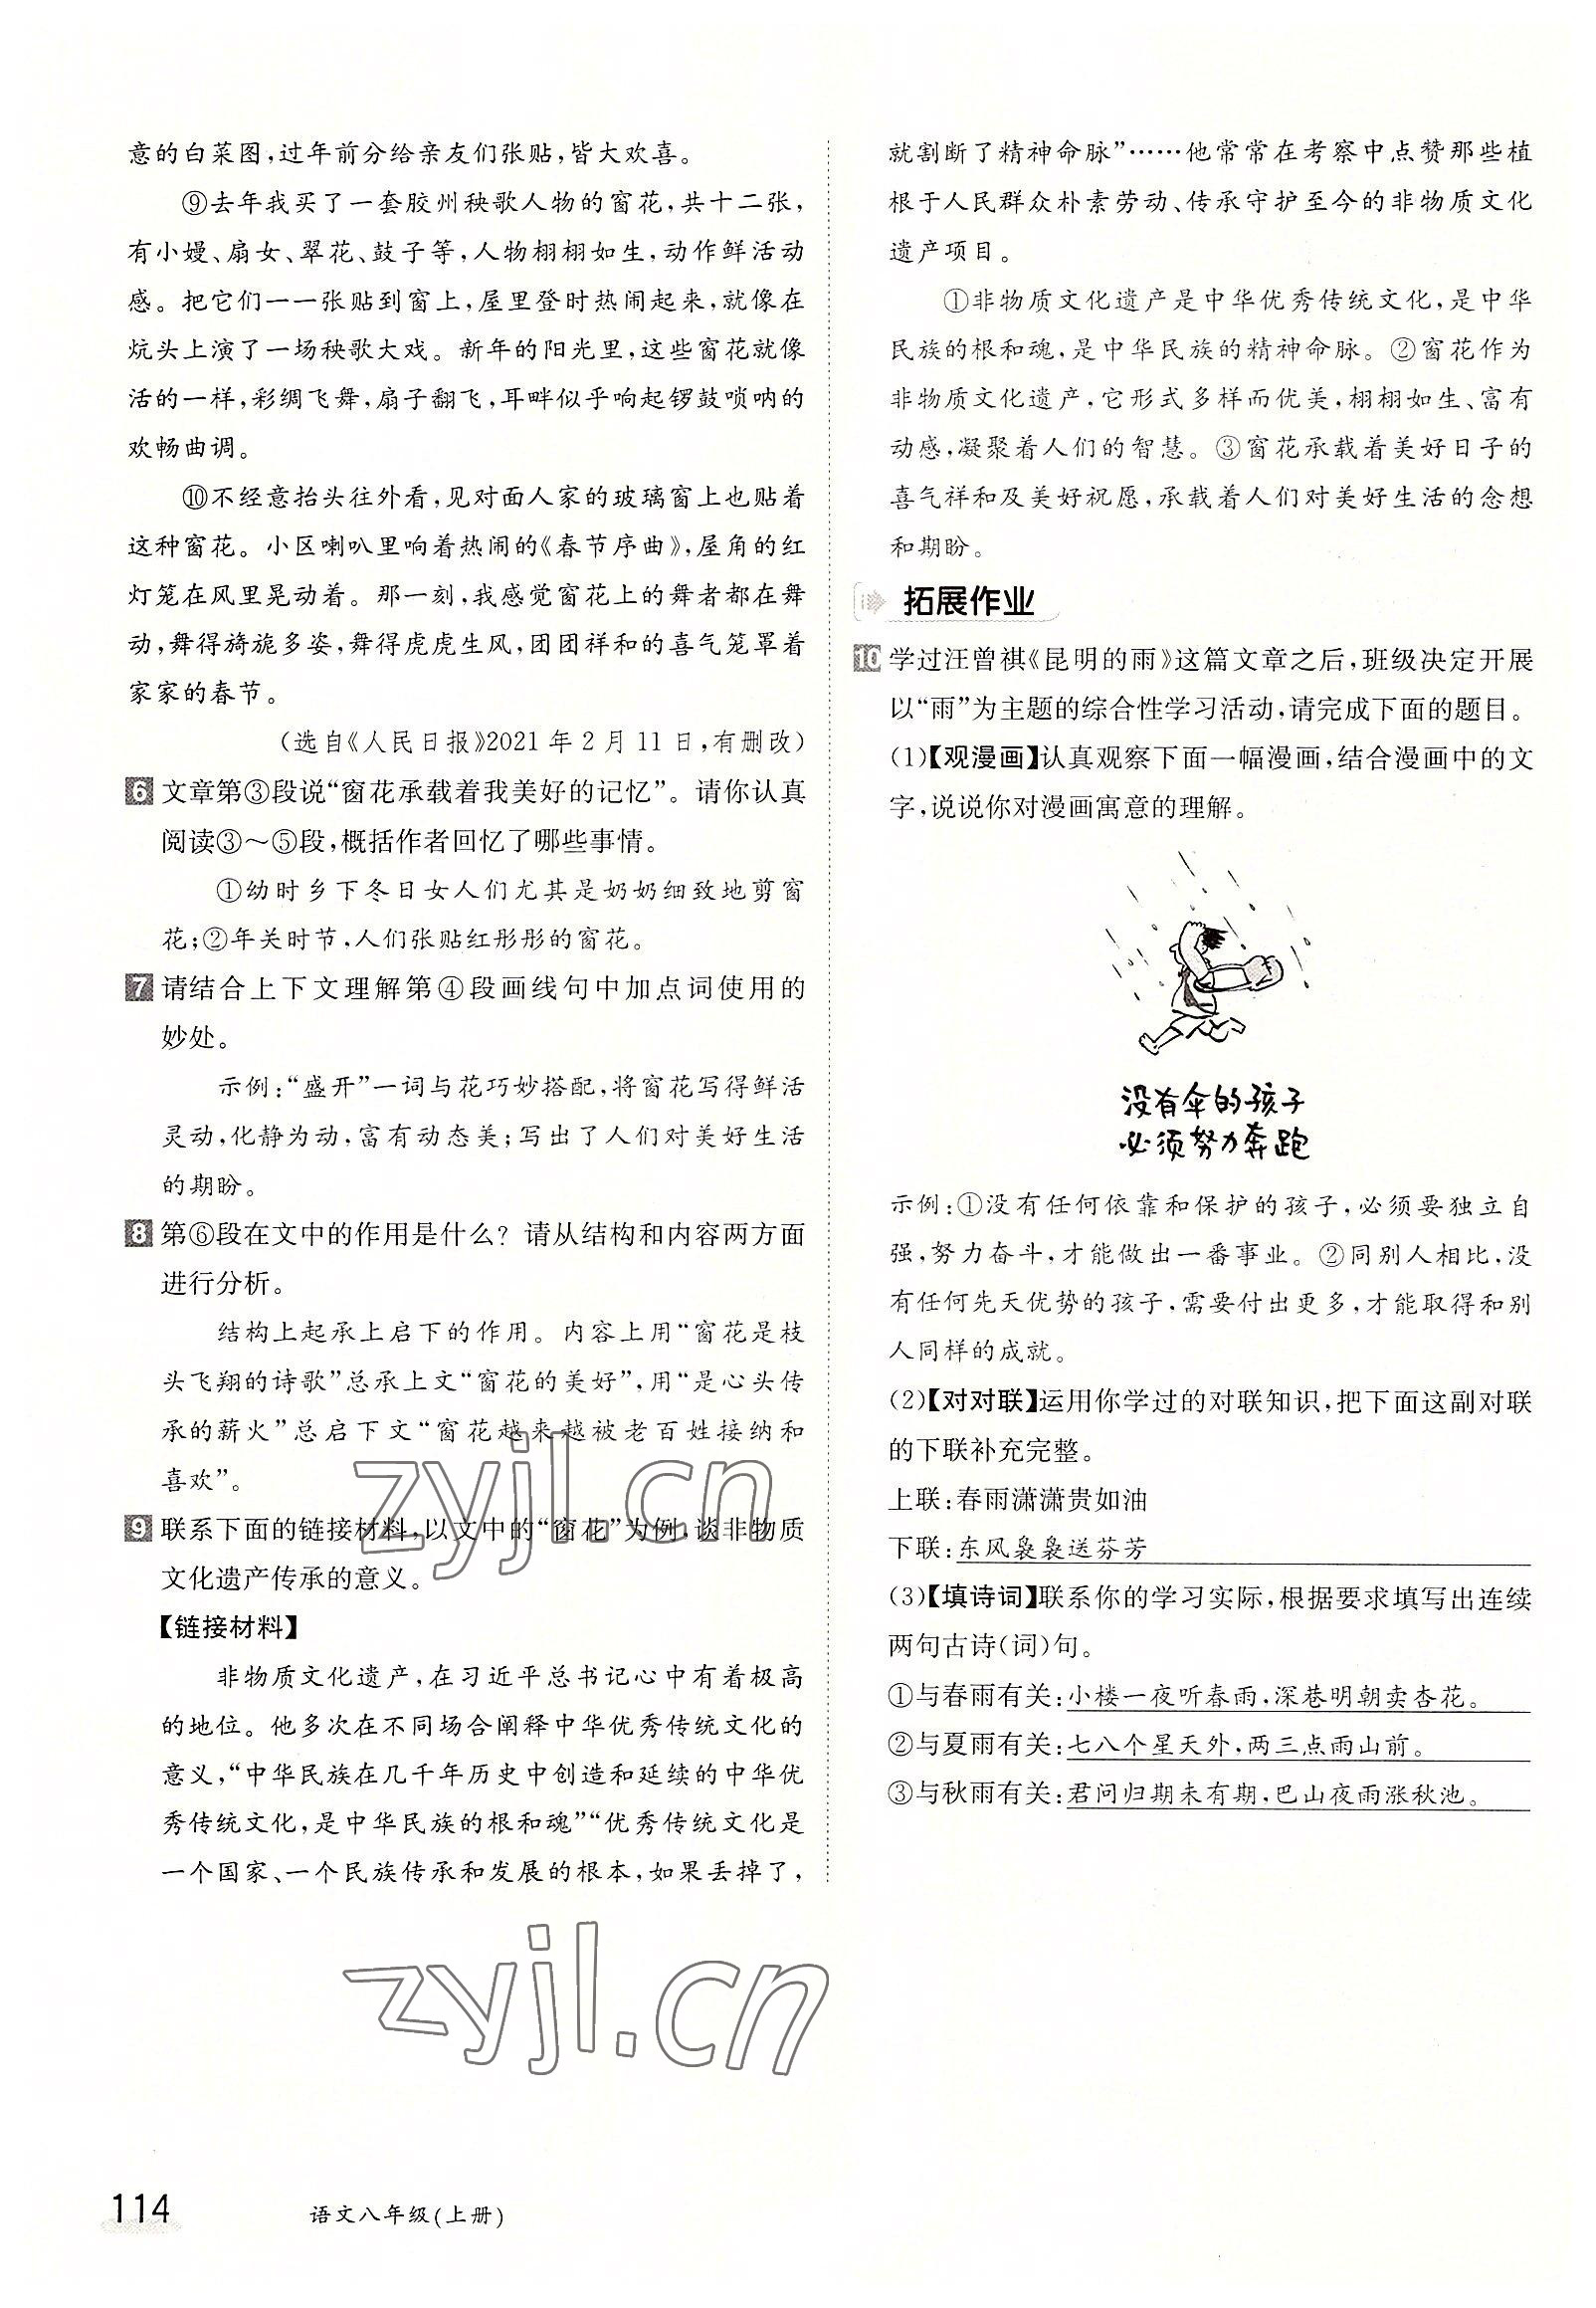 意的白菜图,过年前分给亲友们张贴,皆大欢喜。
⑨去年我买了一套胶州秧歌人物的窗花,共十二张,
有小嫚、扇女、翠花、鼓子等,人物栩栩如生,动作鲜活动
感。把它们一一张贴到窗上,屋里登时热闹起来,就像在
炕头上演了一场秧歌大戏。新年的阳光里,这些窗花就像
活的一样,彩绸飞舞,扇子翻飞,耳畔似乎响起锣鼓唢呐的
欢畅曲调。
⑩不经意抬头往外看,见对面人家的玻璃窗上也贴着
这种窗花。小区喇叭里响着热闹的《春节序曲》,屋角的红
灯笼在风里晃动着。那一刻,我感觉窗花上的舞者都在舞
动,舞得旖旎多姿,舞得虎虎生风,团团祥和的喜气笼罩着
家家的春节。
(选自《人民日报》2021年2月11日,有删改)
6 文章第③段说“窗花承载着我美好的记忆”。请你认真
阅读③～⑤段,概括作者回忆了哪些事情。
①幼时乡下冬日女人们尤其是奶奶细致地剪窗
花;②年关时节,人们张贴红彤彤的窗花。
7 请结合上下文理解第④段画线句中加点词使用的
妙处。
示例:“盛开”一词与花巧妙搭配,将窗花写得鲜活
灵动,化静为动,富有动态美;写出了人们对美好生活
的期盼。
8 第⑥段在文中的作用是什么? 请从结构和内容两方面
进行分析。
结构上起承上启下的作用。内容上用“窗花是枝
头飞翔的诗歌”总承上文“窗花的美好”,用“是心头传
承的薪火”总启下文“窗花越来越被老百姓接纳和
喜欢”。
9 联系下面的链接材料,以文中的“窗花”为例,谈非物质
文化遗产传承的意义。
【链接材料】
非物质文化遗产,在习近平总书记心中有着极高
的地位。他多次在不同场合阐释中华优秀传统文化的
意义,“中华民族在几千年历史中创造和延续的中华优
秀传统文化,是中华民族的根和魂”“优秀传统文化是
一个国家、一个民族传承和发展的根本,如果丢掉了,
就割断了精神命脉”……他常常在考察中点赞那些植
根于人民群众朴素劳动、传承守护至今的非物质文化
遗产项目。
①非物质文化遗产是中华优秀传统文化,是中华
民族的根和魂,是中华民族的精神命脉。②窗花作为
非物质文化遗产,它形式多样而优美,栩栩如生、富有
动感,凝聚着人们的智慧。③窗花承载着美好日子的
喜气祥和及美好祝愿,承载着人们对美好生活的念想
和期盼。
拓展作业
10 学过汪曾祺《昆明的雨》这篇文章之后,班级决定开展
以“雨”为主题的综合性学习活动,请完成下面的题目。
(1)【观漫画】认真观察下面一幅漫画,结合漫画中的文
字,说说你对漫画寓意的理解。
没有伞的孩子
必须努力奔跑
示例:①没有任何依靠和保护的孩子,必须要独立自
强,努力奋斗,才能做出一番事业。②同别人相比,没
有任何先天优势的孩子,需要付出更多,才能取得和别
人同样的成就。
(2)【对对联】运用你学过的对联知识,把下面这副对联
的下联补充完整。
上联:春雨潇潇贵如油
下联:东风袅袅送芬芳
(3)【填诗词】联系你的学习实际,根据要求填写出连续
两句古诗(词)句。
①与春雨有关:小楼一夜听春雨,深巷明朝卖杏花。
②与夏雨有关:七八个星天外,两三点雨山前。
③与秋雨有关:君问归期未有期,巴山夜雨涨秋池。
zyjl.cn
zyjl.cn
114 语文八年级(上册)